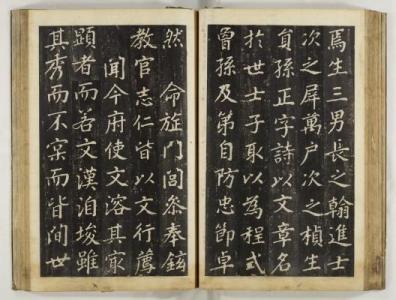 焉生三男長之翰進士
次之屏萬户次之楨生
貟孫正字詩以文章名
於世士子取以為程式
曾孫及弟自防忠節卓
然 命旌門閭叅奉鉉
教官志仁皆以文行薦
聞今府使文溶其家
顯者而若文漢洎埈雖
其秀而不宲而皆間世